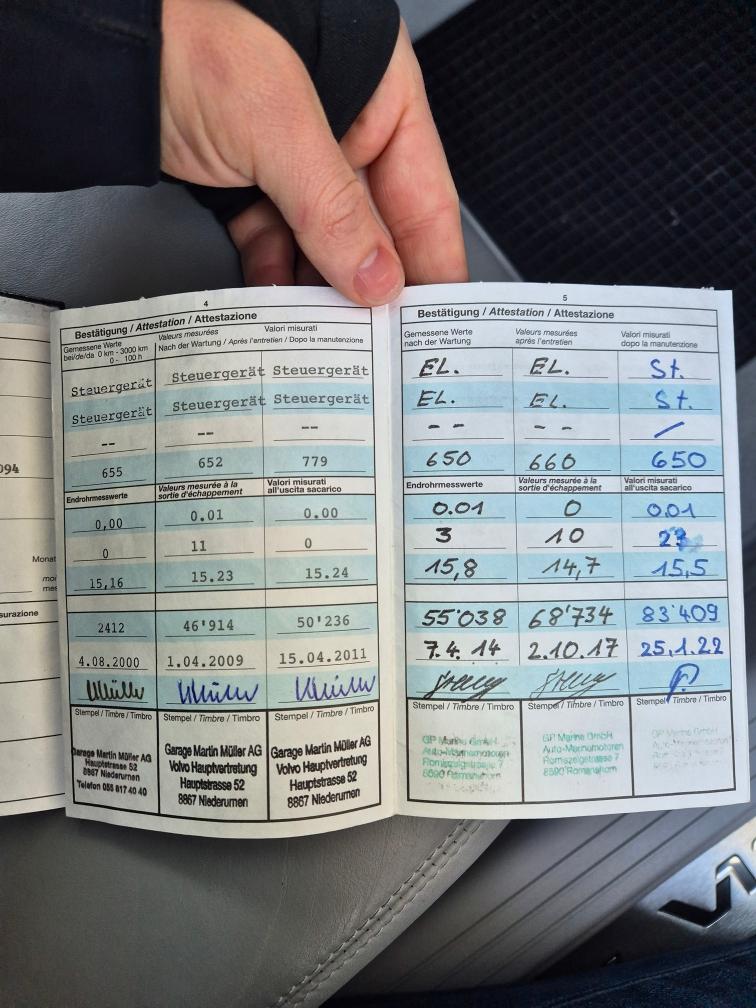 094
Monat
surazione
4
Bestätigung / Attestation / Attestazione
Gemessene Werte
bei/de/da 0 km - 3000 km
0 - 100 h
Valeurs mesurées
Valori misurati
Nach der Wartung / Après l'entretien / Dopo la manutenzione
Steuergerät Steuergerät Steuergerät
Steuergerät Steuergerät Steuergerät
-- -- --
655 652 779
Endrohrmesswerte
Valeurs mesurée à la
sortie d'échappement
Valori misurati
all'uscita sacarico
0,00 0.01 0.00
0 11 0
15,16 15.23 15.24
2412 46'914 50'236
4.08.2000 1.04.2009 15.04.2011
Stempel / Timbre / Timbro Stempel / Timbre / Timbro Stempel / Timbre / Timbro
Garage Martin Müller AG
Hauptstrasse 52
8867 Niederurnen
Telefon 055 617 40 40
Garage Martin Müller AG
Volvo Hauptvertretung
Hauptstrasse 52
8867 Niederurnen
Garage Martin Müller AG
Volvo Hauptvertretung
Hauptstrasse 52
8867 Niederurnen
5
Bestätigung / Attestation / Attestazione
Gemessene Werte
nach der Wartung
Valeurs mesurées
après l'entretien
Valori misurati
dopo la manutenzione
EL. EL. St.
EL. EL. St.
-- -- /
650 660 650
Endrohrmesswerte
Valeurs mesurée à la
sortie d'échappement
Valori misurati
all'uscita sacarico
0.01 0 0.01
3 10
15,8 14,7 15,5
55'038 68'734 83'409
7.4.14 2.10.17 25.1.22
Stempel / Timbre / Timbro Stempel / Timbre / Timbro Stempel / Timbre / Timbro
GP Marine GmbH
Auto-Marinemotoren
8590 Romanshorn
GP Marine GmbH
Auto-Marinemotoren
8590 Romanshorn
GP Marine GmbH